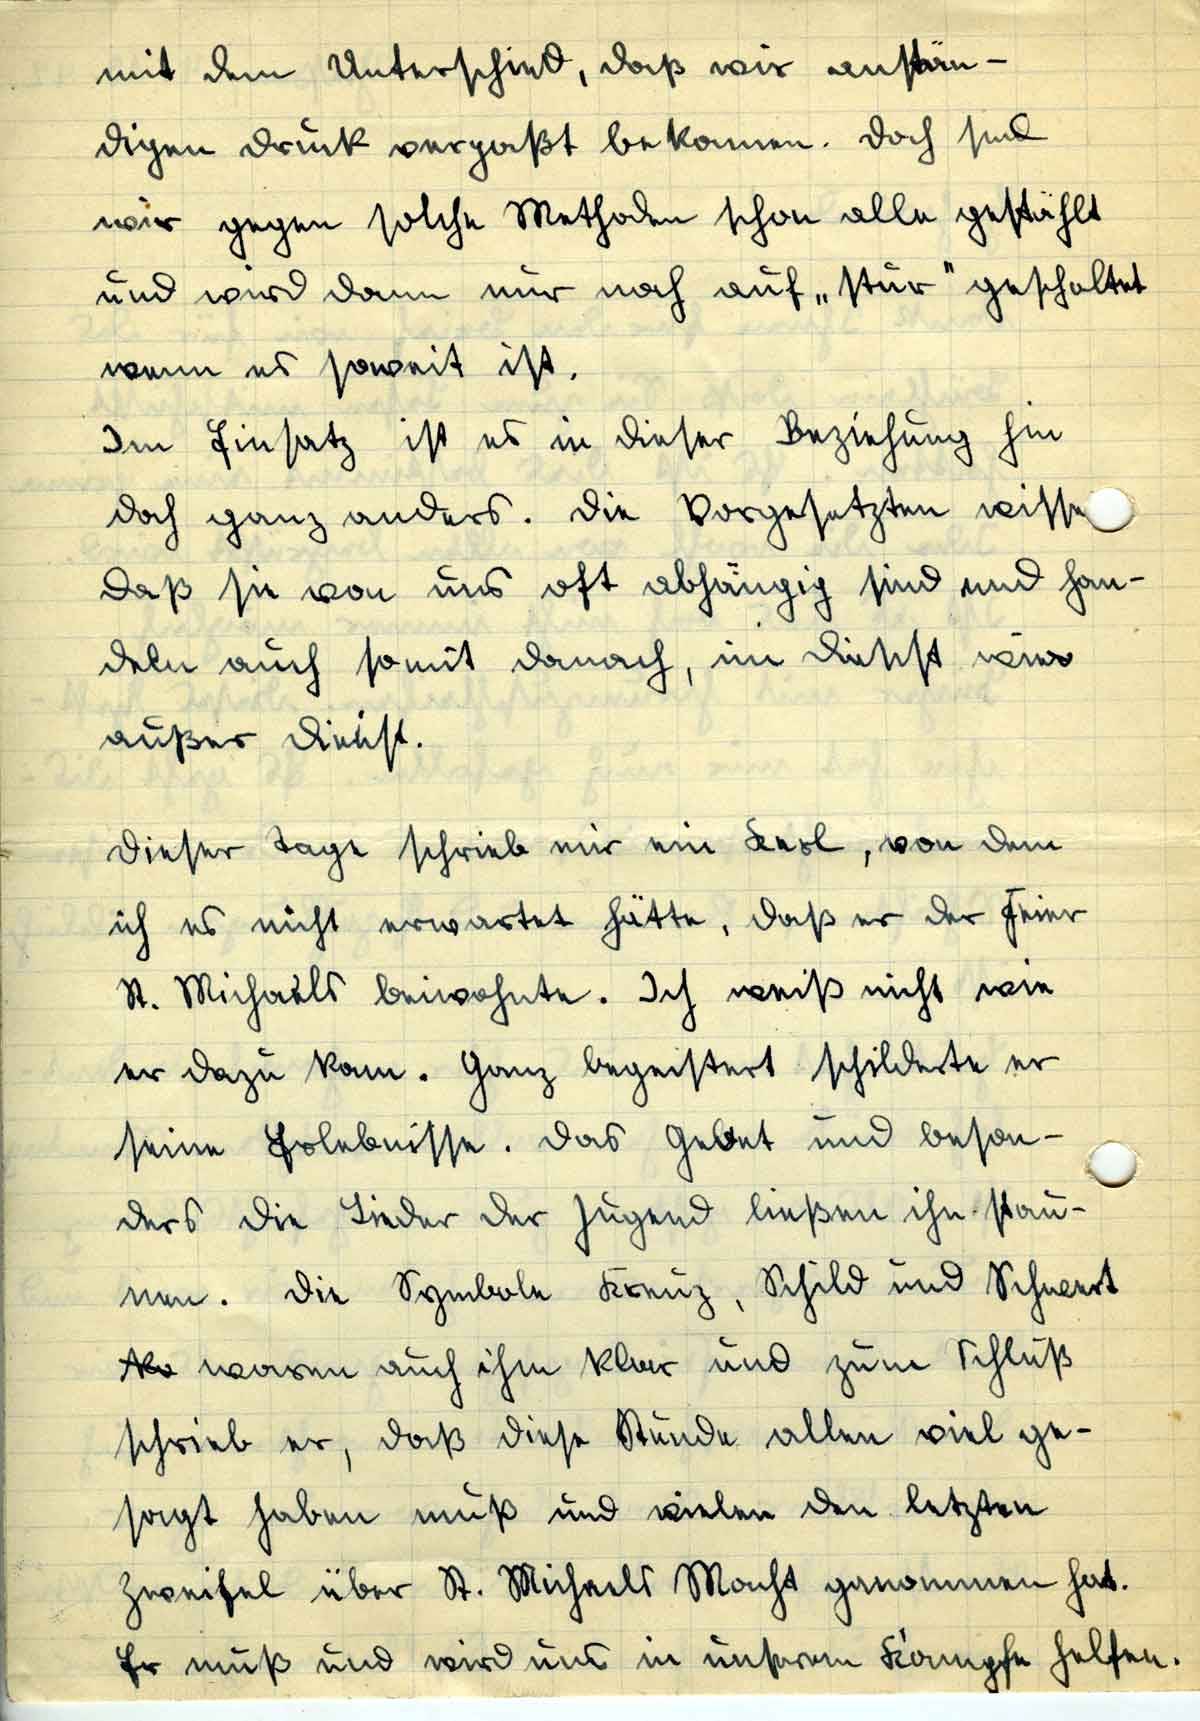 mit dem Unterschied, daß wir anstän-
digen Druck verpaßt bekamen. Doch sind
wir gegen solche Methoden schon alle gestählt
und wird dann nur noch auf „stur" geschaltet
wenn es soweit ist.
Im Einsatz ist es in dieser Beziehung hin
doch ganz anders. Die Vorgesetzten wisse
daß sie von uns oft abhängig sind und han-
deln auch somit danach, im Dienst wie
außer Dienst.
Dieser Tage schrieb mir ein Kerl, von dem
ich es nicht erwartet hätte, daß er der Feier
St. Michaels beiwohnte. Ich weiß nicht wie
er dazu kam. Ganz begeistert schilderte er
seine Erlebnisse. Das Gebet und beson-
ders die Lieder der Jugend ließen ihn stau-
nen. Die Symbole Kreuz, Schild und Schwert
waren auch ihm klar und zum Schluß
schrieb er, daß diese Stunde allen viel ge-
sagt haben muß und vielen den letzten
Zweifel über St. Michaels Macht genommen hat.
Er muß und wird uns in unserem Kampfe helfen.